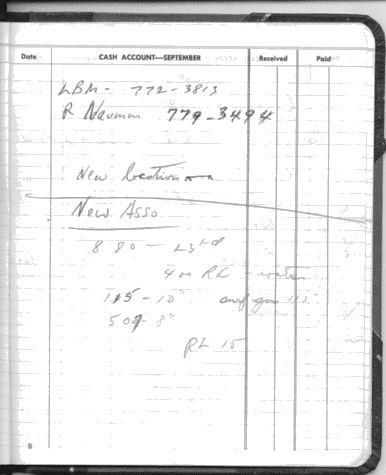 Date CASH ACCOUNT—SEPTEMBER Received Paid
LBM - 772-3813
R Nauman 779-3494
New location
New Asso
880 -
400 RL -
115 - 10"
507 - 8"
RL 15
8